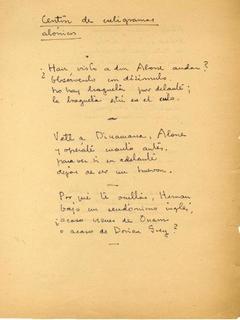 Centón de caligramas
alónicos
¿Han visto a don Alone andar?
Obsérvenlo con disimulo.
no hay bragueta por delante;
la bragueta está en el culo.
Vete a Dinamarca, Alone
y opérate cuanto antes,
para ver si en adelante
dejas de ser un huevón.
Por qué te ocultas, Hernán
bajo un seudónimo inglés,
¿acaso vienes de Onam
o acaso de Dorian Grey?